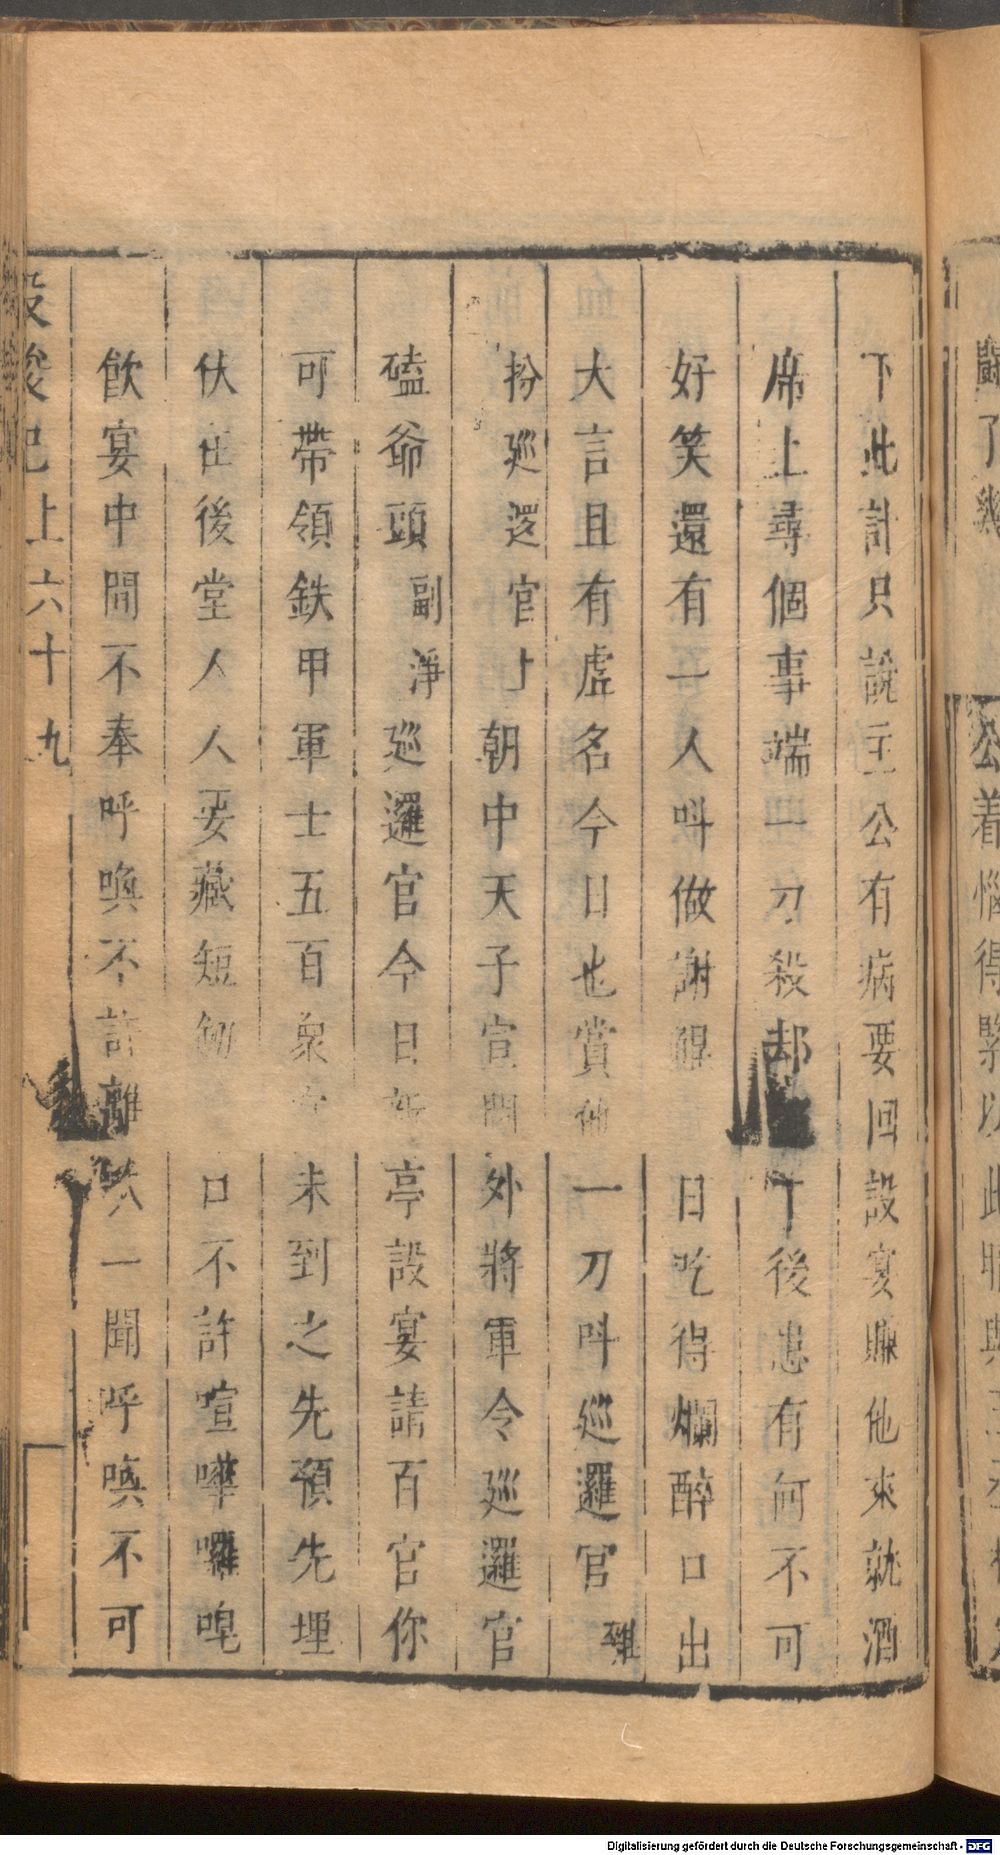 鬪了
公着惱得緊以此
下此計只說主公有病要回設宴賺他來就酒
席上尋個事端一刀殺却了後患有何不可
好笑還有一人呌做謝 日吃得爛醉口出
大言且有虛名今日也賞他一刀呌巡邏官 雜
扮巡逻官上朝中天子宣閫外將軍令巡邏官
磕爺頭 副淨 巡邏官今日新亭設宴請百官你
可帶領鉄甲軍士五百衆官未到之先預先埋
伏在後堂人人要藏短劒 口不許喧嘩囉唣
飲宴中間不奉呼喚不許離 一聞呼喚不可
上六十九
Digitalisierung gefördert durch die Deutsche Forschungsgemeinschaft - DFG